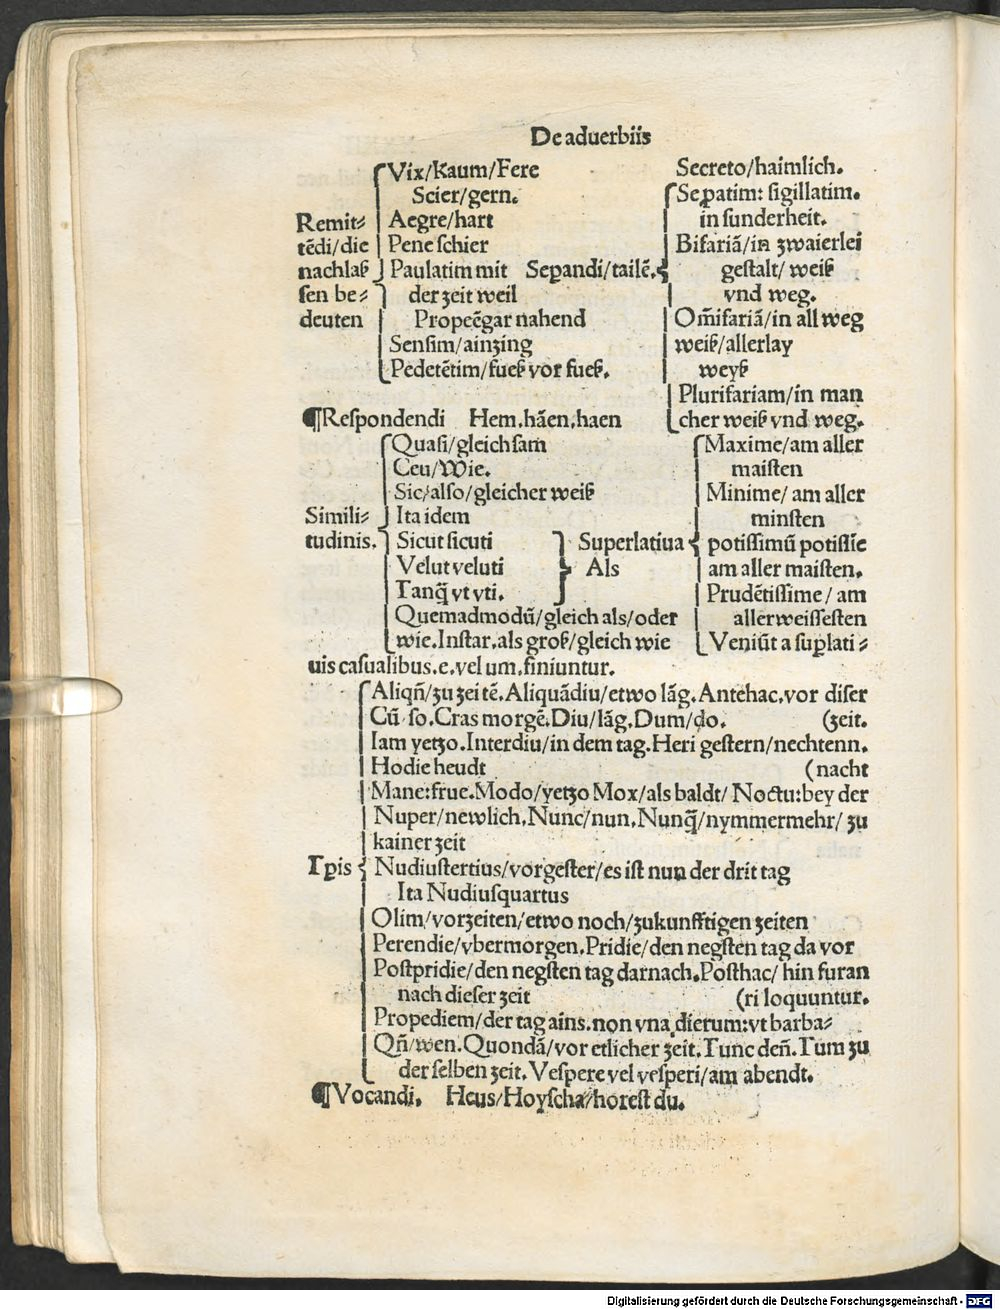 De aduerbiis
Remit⸗
tēdi/die
nachlaß
sen be⸗
deuten
Vix/Kaum/Fere
Scier/gern.
Aegre/hart
Pene schier
Paulatim mit
der zeit weil
Propeēgar nahend
Sensim/ainzing
Pedetētim/fueß vor fueß.
Sepandi/tailē.
Secreto/haimlich.
Sepatim: sigillatim.
in sunderheit.
Bifariā/in zwaierlei
gestalt/ weiß
vnd weg.
Om̄ifariā/in all weg
weiß/allerlay
weyß
Plurifariam/in man
cher weiß vnd weg.
¶Respondendi Hem.hāen,haen
Simili⸗
tudinis.
Quasi/gleichsam
Ceu/Wie.
Sic/also/gleicher weiß
Ita idem
Sicut sicuti
Velut veluti
Tanq̄ vt vti.
Quemadmodū/gleich als/oder
wie.Instar.als groß/gleich wie
Superlatiua
Als
Maxime/am aller
maisten
Minime/ am aller
minsten
potissimū potissīe
am aller maisten.
Prudētissime/ am
allerweissesten
Veniūt a suplati⸗
uis casualibus.e.vel um.finiuntur.
Tpis
Aliqñ/zu zei tē.Aliquādiu/etwo lāg.Antehac.vor diser
Cū so.Cras morgē.Diu/lāg.Dum/do. (zeit.
Iam yetzo.Interdiu/in dem tag.Heri gestern/nechtenn.
Hodie heudt (nacht
Mane:frue.Modo/yetzo Mox/als baldt/ Noctu:bey der
Nuper/newlich.Nunc/nun.Nunq̄/nymmermehr/ zu
kainer zeit
Nudiustertius/vorgester/es ist nun der drit tag
Ita Nudiusquartus
Olim/vorzeiten/etwo noch/zukunfftigen zeiten
Perendie/vbermorgen.Pridie/den negsten tag da vor
Postpridie/den negsten tag darnach.Posthac/ hin furan
nach dieser zeit (ri loquuntur.
Propediem/der tag ains.non vna dierum:vt barba⸗
Qñ/wen.Quondā/vor etlicher zeit.Tunc deñ.Tum zu
der selben zeit.Vespere vel vesperi/am abendt.
¶Vocandi. Heus/Hoyscha/horest du.
Digitalisierung gefördert durch die Deutsche Forschungsgemeinschaft - DFG